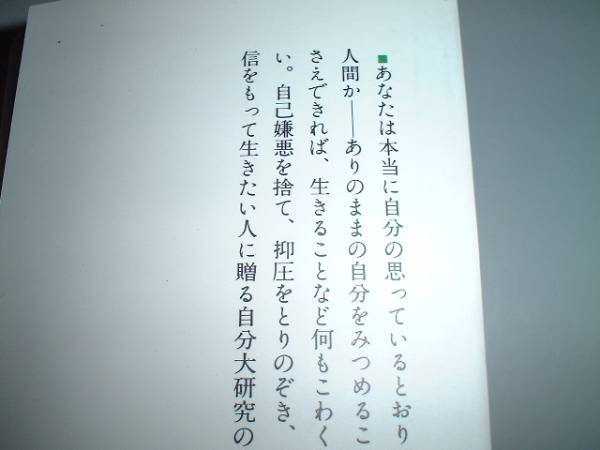 ■あなたは本当に自分の思っているとおり
人間か──ありのままの自分をみつめるこ
さえできれば、生きることなど何もこわく
い。自己嫌悪を捨て、抑圧をとりのぞき、
信をもって生きたい人に贈る自分大研究の